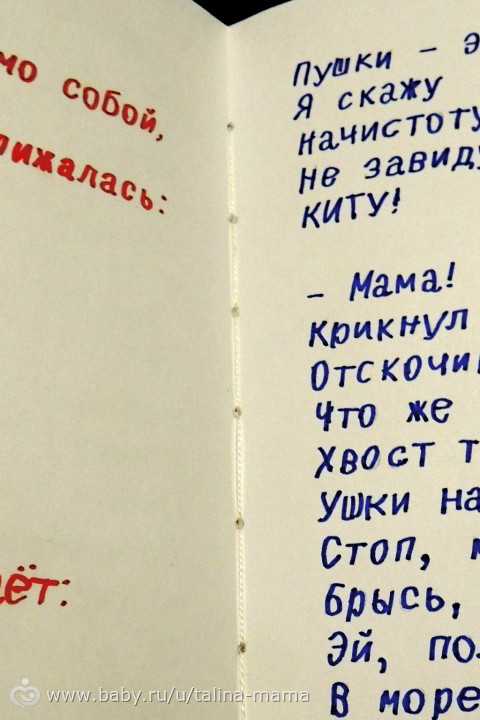 собой,
Пушки –
Я скажу
начистоту
не завид
КИТУ!
– Мама!
Крикнул
Отскочи
Что же
Хвост т
Ушки на
Стоп, м
брысь,
Эй, по
В море
www.baby.ru/u/talina-mama